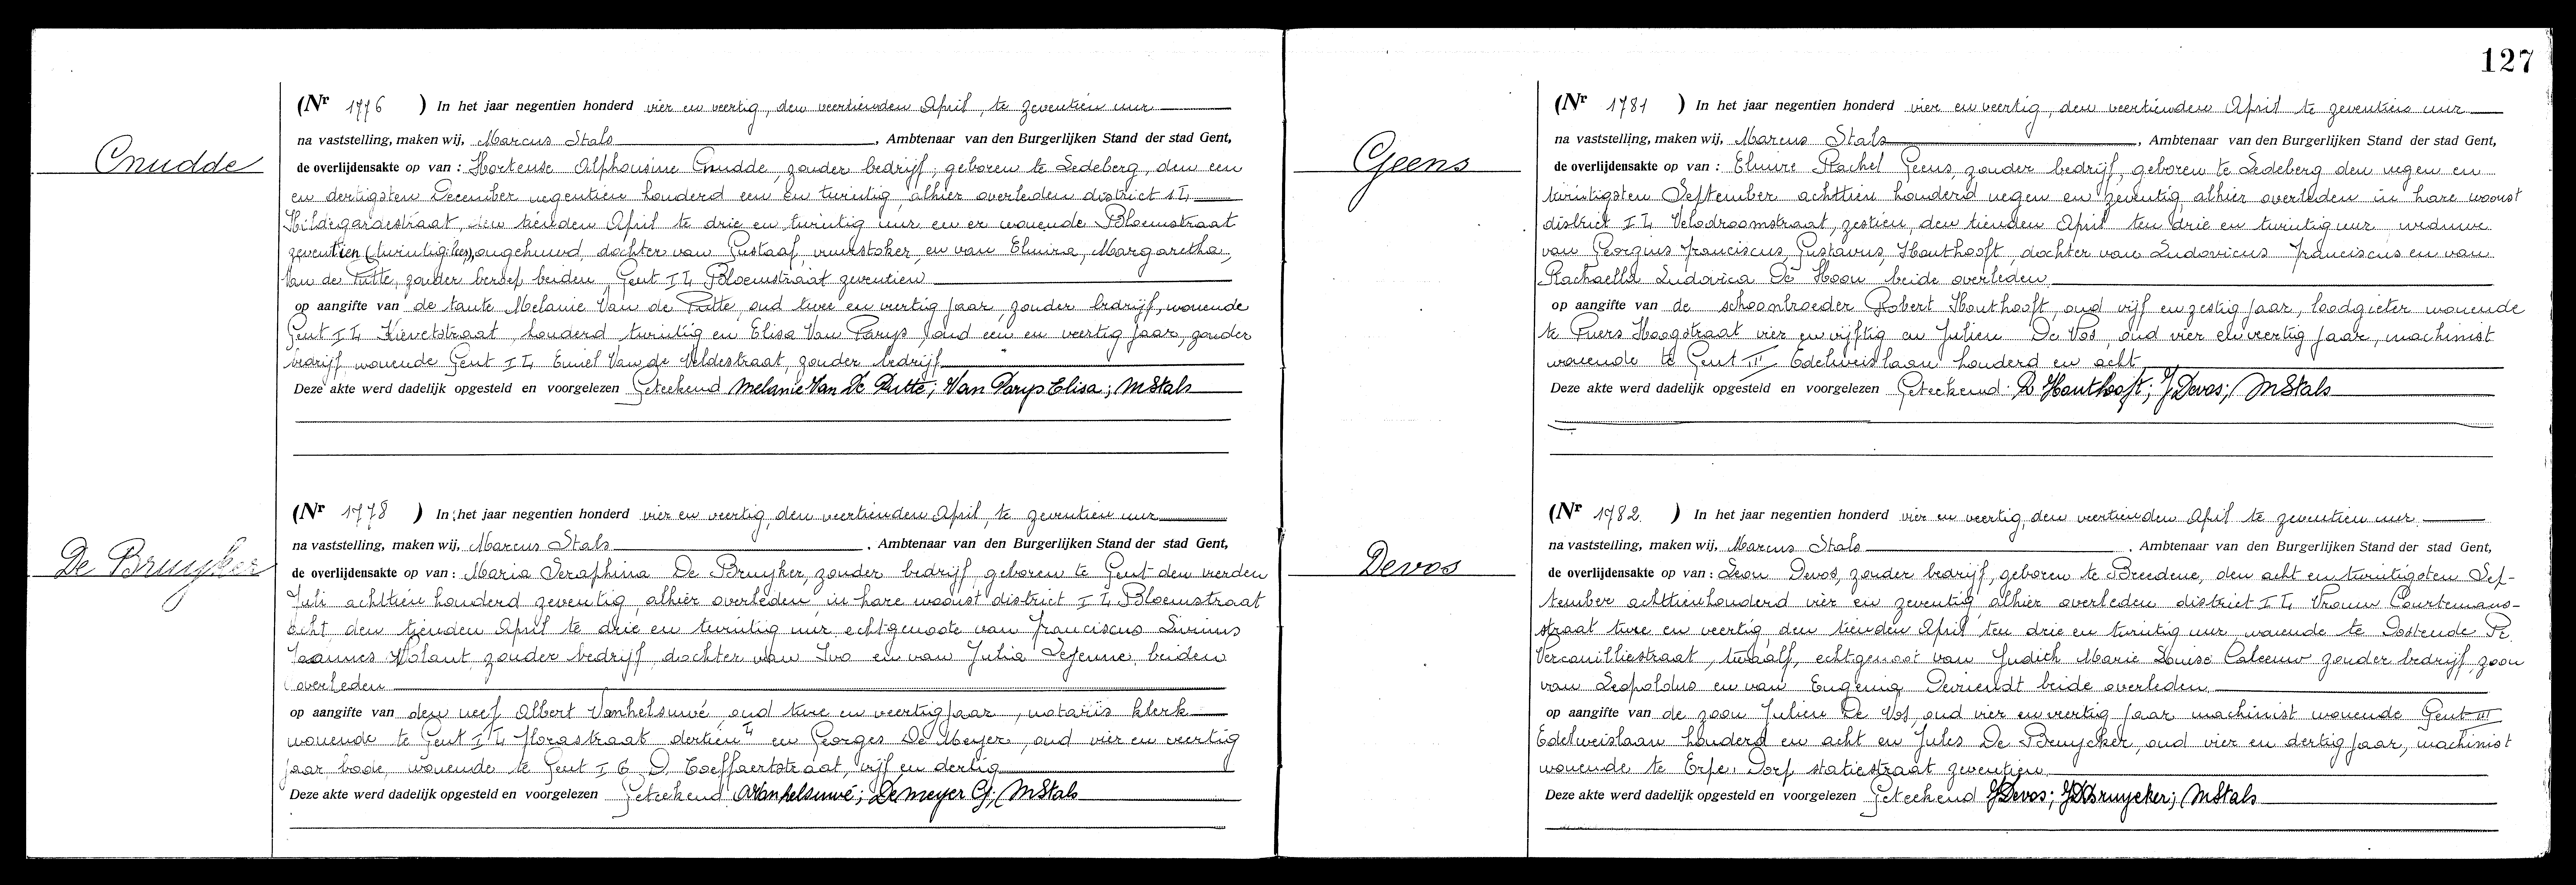 Cnudde
(Nr 1776 ) In het jaar negentien honderd vier en veertig, den veertienden April, te zeventien uur
na vaststelling, maken wij, Marcus Stals, Ambtenaar van den Burgerlijken Stand der stad Gent,
de overlijdensakte op van : Hortense Alphonsine Cnudde, zonder bedrijf, geboren te Ledeberg, den een
en dertigsten December negentien honderd een en twintig, alhier overleden district 14
Hildegardestraat, den tienden April te drie en twintig uur en er wonende Bloemstraat
zeventien (twintig bis), ongehuwd, dochter van Gustaaf, vuurstoker, en van Elmira, Margaretha,
Van de Putte, zonder beroep beiden, Gent I4 Bloemstraat zeventien
op aangifte van de tante Melanie Van de Putte, oud twee en veertig jaar, zonder bedrijf, wonende
Gent I4 Kievetstraat honderd twintig en Elisa Van Parys, oud een en veertig jaar, zonder
bedrijf wonende Gent I4 Emiel Van de Veldestraat, zonder bedrijf
Deze akte werd dadelijk opgesteld en voorgelezen Geteekend Melanie Van De Putte; Van Parys Elisa; MStals
De Bruyker
(Nr 1778 ) In het jaar negentien honderd vier en veertig, den veertienden April, te zeventien uur
na vaststelling, maken wij, Marcus Stals, Ambtenaar van den Burgerlijken Stand der stad Gent,
de overlijdensakte op van : Maria Seraphina De Bruyker, zonder bedrijf, geboren te Gent den vierden
Juli achttien honderd zeventig, alhier overleden in hare woonst district I4 Bloemstraat
acht, den tienden April te drie en twintig uur, echtgenoote van Franciscus Livinus
Joannes Volant, zonder bedrijf, dochter van Ivo en van Julia Lejeune, beiden
overleden
op aangifte van den neef Albert Vanhelsuwé, oud twee en veertig jaar, notariis klerk
wonende te Gent I4 Florastraat dertien en Georges De Meyer, oud vier en veertig
jaar, bode, wonende te Gent I 6 D. Coeffaertstraat, vijf en dertig
Deze akte werd dadelijk opgesteld en voorgelezen Geteekend AVanhelsuwé; De Meyer G; MStals
127
Geens
(Nr 1781 ) In het jaar negentien honderd vier en veertig, den veertienden April te zeventien uur
na vaststelling, maken wij, Marcus Stals, Ambtenaar van den Burgerlijken Stand der stad Gent,
de overlijdensakte op van : Elmire Rachel Geens, zonder bedrijf, geboren te Ledeberg den negen en
twintigsten September achttien honderd negen en zeventig alhier overleden in hare woonst
district I4 Velodroomstraat, zestien, den tienden April ten drie en twintig uur weduwe
van Georgius Franciscus, Gustavus, Houthooft, dochter van Ludovicus Franciscus en van
Rachaella Ludovica De Hoon beide overleden
op aangifte van de schoonbroeder Robert Houthooft, oud vijf en zestig jaar, loodgieter wonende
te Puers Hoogstraat vier en vijftig en Julien De Vos, oud vier en veertig jaar, machinist
wonende te Gent III Edelweislaan honderd en acht
Deze akte werd dadelijk opgesteld en voorgelezen Geteekend R Houthooft; J Devos; MStals
Devos
(Nr 1782 ) In het jaar negentien honderd vier en veertig, den veertienden April te zeventien uur
na vaststelling, maken wij, Marcus Stals, Ambtenaar van den Burgerlijken Stand der stad Gent,
de overlijdensakte op van : Leon Devos, zonder bedrijf, geboren te Breedene, den acht en twintigsten Sep-
tember achttienhonderd vier en zeventig alhier overleden district I4 Vrouw Courtemans-
straat twee en veertig, den tienden April ten drie en twintig uur, wonende te Oostende
Vercouilliestraat, twaalf, echtgenoot van Judith Marie Louise Caleeuw zonder bedrijf, zoon
van Leopoldus en van Eugenia Devriendt beide overleden
op aangifte van de zoon Julien De Vos, oud vier en veertig jaar machinist wonende Gent III
Edelweislaan honderd en acht en Jules De Bruycker, oud vier en dertig jaar, machinist
wonende te Erpe, Dorp statiestraat zeventien
Deze akte werd dadelijk opgesteld en voorgelezen Geteekend JDevos; JDBruycker; MStals